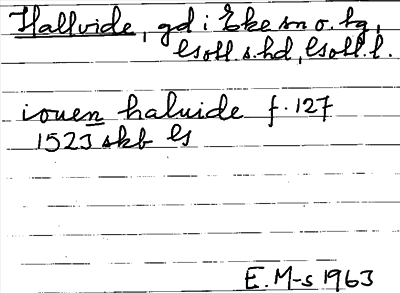 Hallvide, gd i Eke sn o. tg,
Gotl. s. hd, Gotl. l.
iouen haluide f. 127
1523 skb G
E. M-s 1963